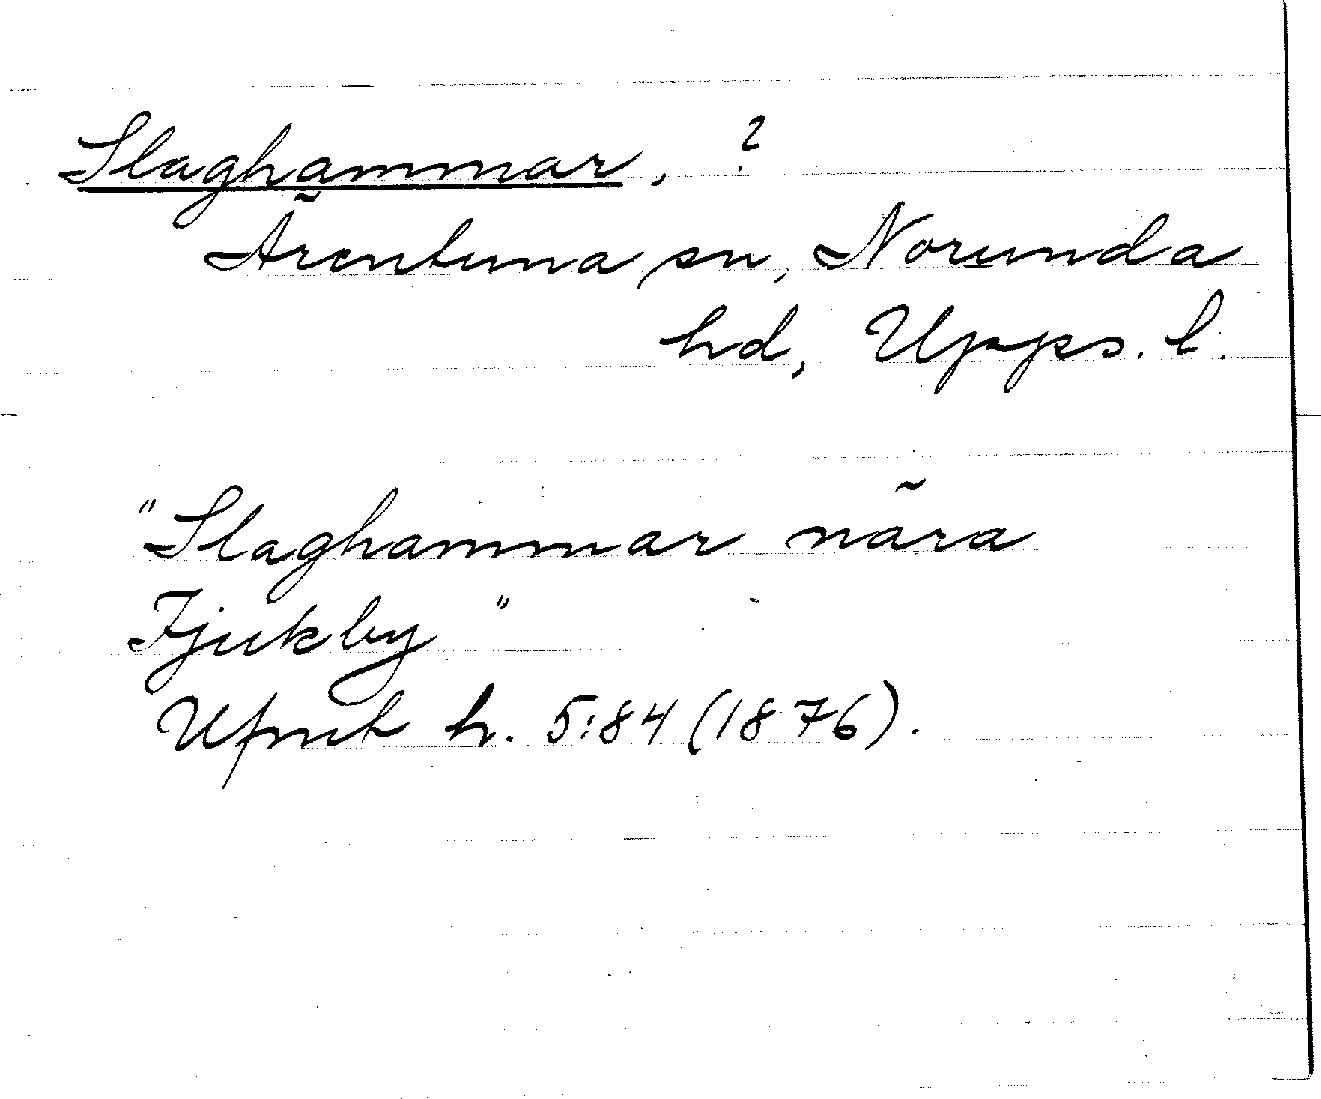 Slaghammar, ?
Ärentuna sn, Norunda
hd, Upps. l.
"Slaghammar nära
Fjukby"
Ufmt h. 5:84 (1876).